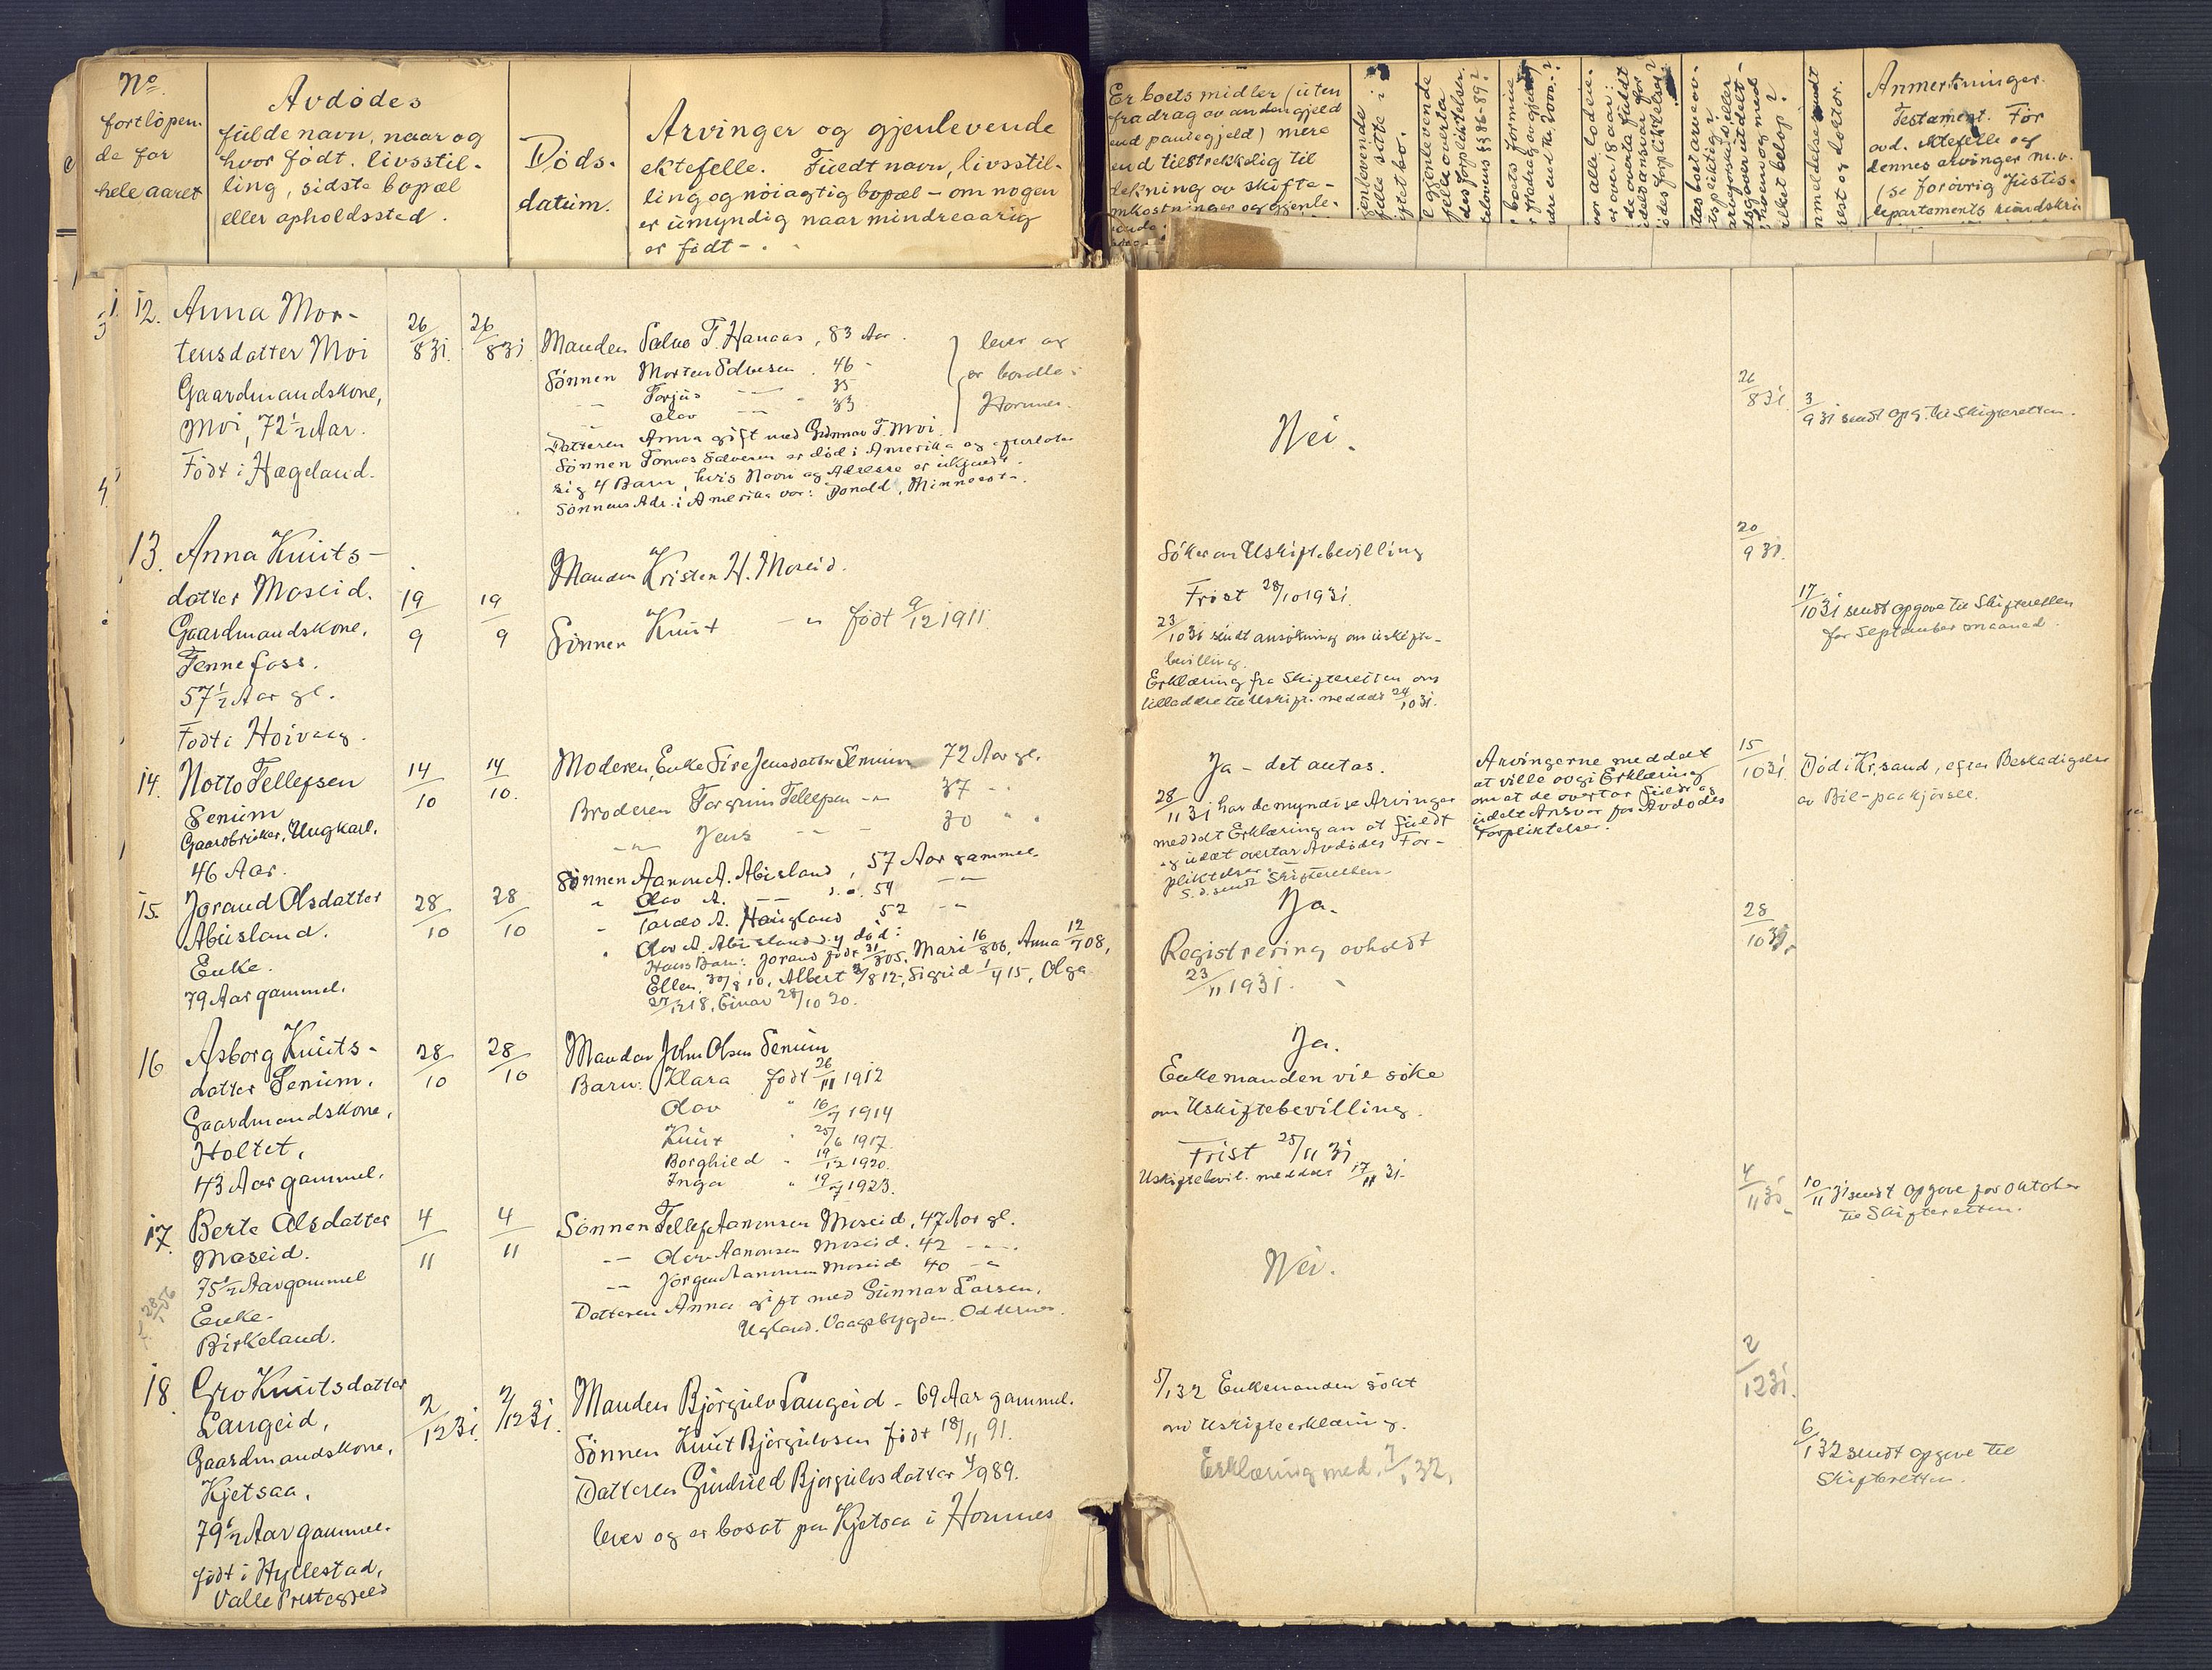 No.
fortløpen-
de for
hele aaret
Avdødes
fulde navn, naar og
hvor født. livsstil-
ling, sidste bopæl
eller opholdssted.
Døds-
datum.
Arvinger og gjenlevende
ektefelle. Fuldt navn, livsstil-
ling og nøiagtig bopæl - om nogen
er umyndig naar mindreaarig
er født -.
Er boets midler (uten
fradrag av anden gjeld
end pantegjeld) mere
end tilstrekkelig til
dekning av skifte-
omkostninger og gjenle-
Anmerkninger.
Testament. For
avd. ektefelle og
dennes arvinger m.v.
(se forøvrig Justis-
departements rundskri
12. Anna Mor-
tensdatter Moi
Gaardmandskone,
Moi, 72 1/2 Aar.
Født i Hægeland.
26/8 31. 26/8 31
Manden Salve T. Hanaas, 83 Aar.
Sønnen Morten Salvesen. 46 -
-"- Torjus -"- 35
-"- Olav -"- 33
lever og
er bosatte i
Hornnes.
Datteren Anna gift med Gunnar T. Moi.
Sønnen Tomas Salvesen er død i Amerika og efterlot
sig 4 Barn, hvis Navn og Adresse er ukjendt.
Sønnens Adr. i Amerika var: Donald, Minnesot.
Nei.
26/8 31
3/9 31 sendt opg. til Skifteretten.
13. Anna Knuts-
datter Moseid.
Gaardmandskone,
Fennefoss.
57 1/2 Aar gl.
Født i Høivaag.
19/9 19/9
Manden Kristen H. Moseid.
Sønnen Knut -"- født 9/12 1911.
Søker om Uskiftebevilling
Frist 28/10 1931.
23/10 31 sendt ansøkning om uskifte-
bevilling.
Erklæring fra Skifteretten om
tilladelse til Uskifte meddelt 24/10 31.
20/9 31.
17/10 31 sendt opgave til Skifteretten
for September maaned.
14. Notto Tellefsen
Senum
Gaardbruker, Ungkarl,
46 Aar.
14/10 14/10.
Moderen, Enke Sire Jensdatter Senum 72 Aar gl.
Broderen Torgrim Tellefsen -"- 37 -"-
-"- Jens -"- - 30 " "
Ja - det antas.
28/11 31 har de myndige Arvinger
meddelt Erklæring om at fuldt
og udelt overtar Avdødes For-
pliktelser.
S. d. sendt Skifteretten.
Arvingerne meddelt
at ville avgi Erklæring
om at de overtar fuldt og
udelt Ansvar for Avdødes
Forpliktelser.
15/10 31.
Død i Kr.sand, efter Beskadigelse
av Bil-paakjørsel.
15. Jorand Olsdatter
Abusland.
Enke.
79 Aar gammel.
28/10 28/10
Sønnen Aanon A. Abusland, 57 Aar gammel.
" Olav A. -"- 54 -"-
" Tarald A. Haugland 52 -"-
" Olav A. Abusland d.y død:
Hans Barn: Jorand født 31/3 05, Mari 16/8 06, Anna 12/7 08,
Ellen 30/8 10, Albert 3/8 12, Sigrid 1/4 15, Olga
27/12 18, Einar 28/10 20.
Ja.
Registrering avholdt
23/11 1931.
28/10 31.
16 Asborg Knuts-
datter Senum.
Gaardmandskone,
Holtet,
43 Aar gammel.
28/10 28/10
Manden John Olsen Senum
Barn: Klara født 26/11 1912
Olav " 16/7 1914
Knut " 25/6 1917.
Borghild " 19/12 1920.
Inga " 19/7 1923.
Ja.
Enkemanden vil søke
om Uskiftebevilling.
Frist 25/11 31
Uskiftebevil. meddelt 17/11 31.
17. Berte Olsdatter
Moseid.
75 1/2 Aar gammel
Enke.
Birkeland.
4/11 4/11
Sønnen Tellef Aanonsen Moseid, 47 Aar gl.
-"- Olav Aanonsen Moseid. 42 -"-
-"- Jørgen Aanonsen Moseid 40 -"-
Datteren Anna gift med Gunnar Larsen,
Ugland. Vaagsbygden. Oddernes.
Nei.
4/11 31
10/11 31 sendt opgave for oktober
til Skifteretten.
18. Gro Knutsdatter
Langeid,
Gaardmandskone,
Kjetsaa,
79 1/2 Aar gammel.
født i Hyllestad,
Valle Prestegjeld
2/12 31. 2/12 31.
Manden Bjørgulv Langeid - 69 Aar gammel.
Sønnen Knut Bjørgulvsen født 18/11 91.
Datteren Gunhild Bjørgulvsdatter 4/9 89.
lever og er bosat paa Kjetsaa i Hornnes
5/1 32 Enkemanden søkt
om Uskifteerklæring.
Erklæring med. 7/1 32.
2/12 31.
6/1 32 sendt opgave til
Skifteretten.